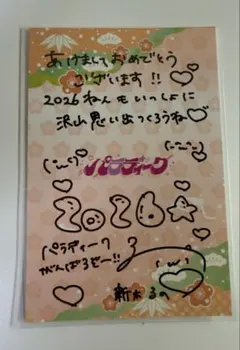 あけましておめでとう
ございます!!
2026ねんもいっしょに
沢山思い出つくろうね♡
パラディーク
2026☆
パラディーク
がんばるぞー!!